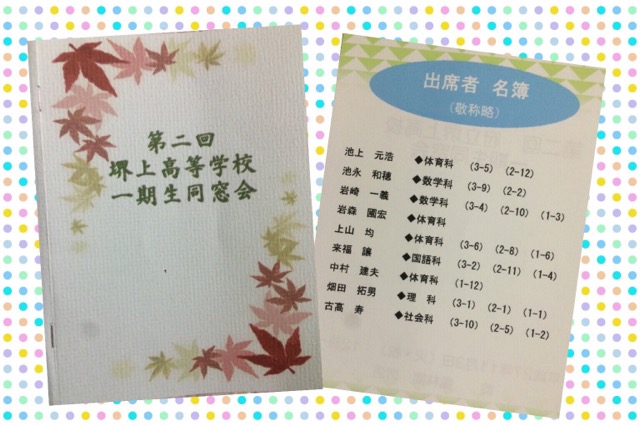 第二回
堺上高等学校
一期生同窓会
出席者 名簿
(敬称略)
池上 元浩 ◆体育科 (3-5) (2-12)
池永 和穂 ◆数学科 (3-9) (2-2)
岩崎 一義 ◆数学科 (3-4) (2-10) (1-3)
岩森 國宏 ◆体育科
上山 均 ◆体育科 (3-6) (2-8) (1-6)
来福 譲 ◆国語科 (3-2) (2-11) (1-4)
中村 建夫 ◆体育科 (1-12)
畑田 拓男 ◆理 科 (3-1) (2-1) (1-1)
古高 寿 ◆社会科 (3-10) (2-5) (1-2)